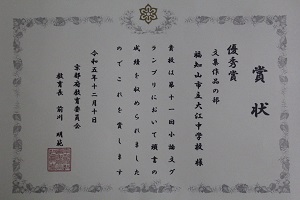 賞状
優秀賞
文集作品の部
福知山市立大江中学校 様
貴校は第十一回小論文グ
ランプリにおいて頭書の
成績を収められました
のでこれを賞します
令和五年十二月十日
京都府教育委員会
教育長 前川 明範